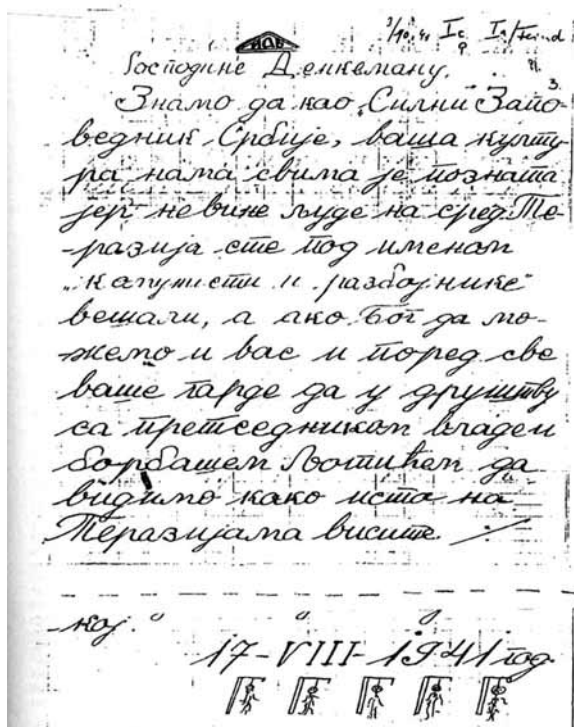 3/10. 41 Ic Ia/Feind
Господине Денкеману.
3.
Знамо да као „Силни Запо-
ведник Србије, ваша култу-
ра нама свима је позната
јер невине људе на сред Те-
-разија сте под именом
и разбојнике"
вешали, а ако Бог да мо-
жемо и вас и поред све
ваше гарде да у друштву
са претседником владе и
борбашем Љотићем да
видимо како иста на
Теразијама висите.
-кој.
17-VIII-1941 год.